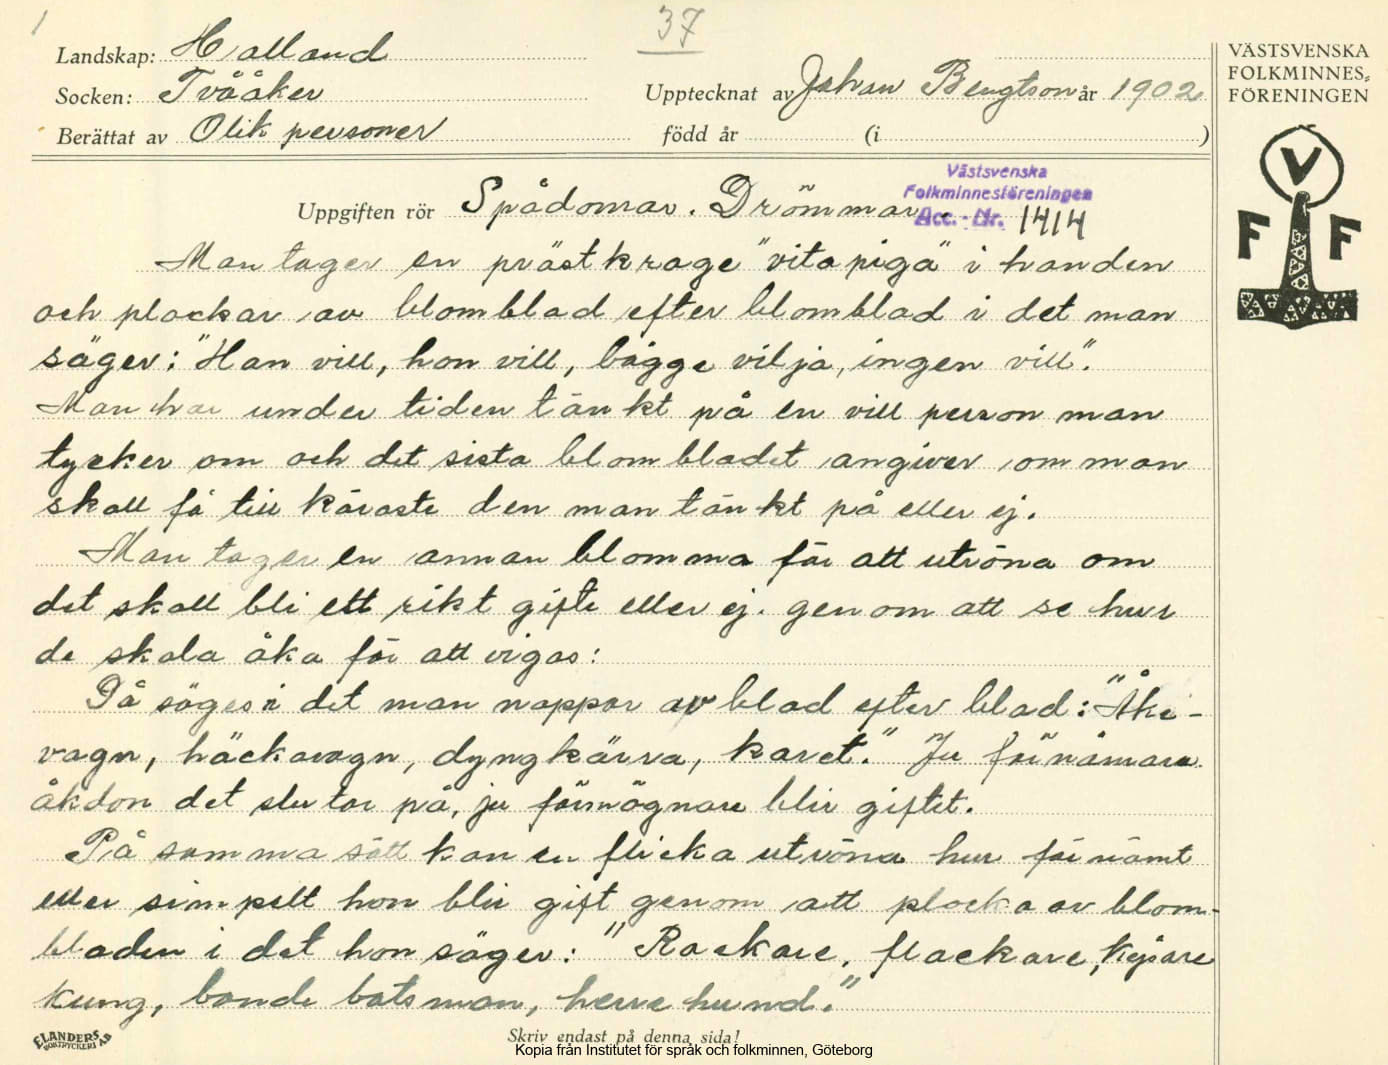 1
37
Landskap: Halland
Socken: Tvååker
Upptecknat av Johan Bengtson år 1902
Berättat av Olik personer
född år (i )
VÄSTSVENSKA
FOLKMINNES-
FÖRENINGEN
V
F F
Västsvenska
Folkminnesföreningen
Acc. - Nr. 1414
Uppgiften rör Spådomar. Drömmar.
Man tager en prästkrage "vita piga" i handen
och plockar av blomblad efter blomblad i det man
säger: "Han vill, hon vill, bägge vilja, ingen vill".
Man har under tiden tänkt på en viss person man
tycker om och det sista blombladet angiver om man
skall få till käraste den man tänkt på eller ej.
Man tager en annan blomma för att utröna om
det skall bli ett rikt gifte eller ej. genom att se hur
de skola åka för att vigas:
Då säges i det man nappar av blad efter blad: "Åke-
vagn, häckavagn, dyngkärra, karet." Ju förnämare
åkdon det slutar på, ju förmögnare blir giftet.
På samma sätt kan en flicka utröna hur förnämt
eller simpelt hon blir gift genom att plocka av blom-
bladen i det hon säger: "Rackare, flackare, kejsare
kung, bonde båtsman, herre hund."
ELANDERS
BOKTRYCKERI AB
Skriv endast på denna sida!
Kopia från Institutet för språk och folkminnen, Göteborg